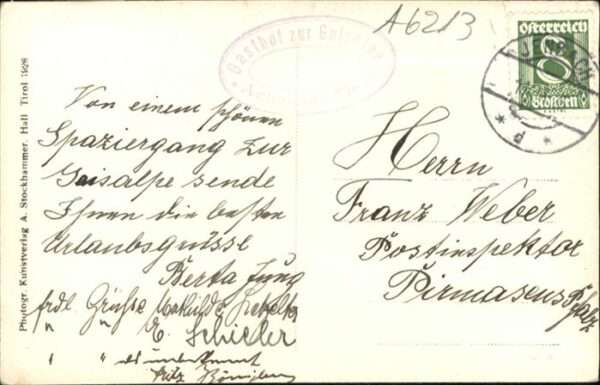 A6213
Gasthof zur
Österreich
8
Groschen
JENBACH
Von einem schönen
Spaziergang zur
Gaisalpe sende
Ihnen die besten
Urlaubsgrüsse
Berta Jung
frdl. Grüsse
" " E. Schieler
" " als unbekannt
Fritz
Herrn
Franz Weber
Postinspektor
Pirmasens
Pfalz
Photogr. Kunstverlag A. Stockhammer, Hall Tirol 1928